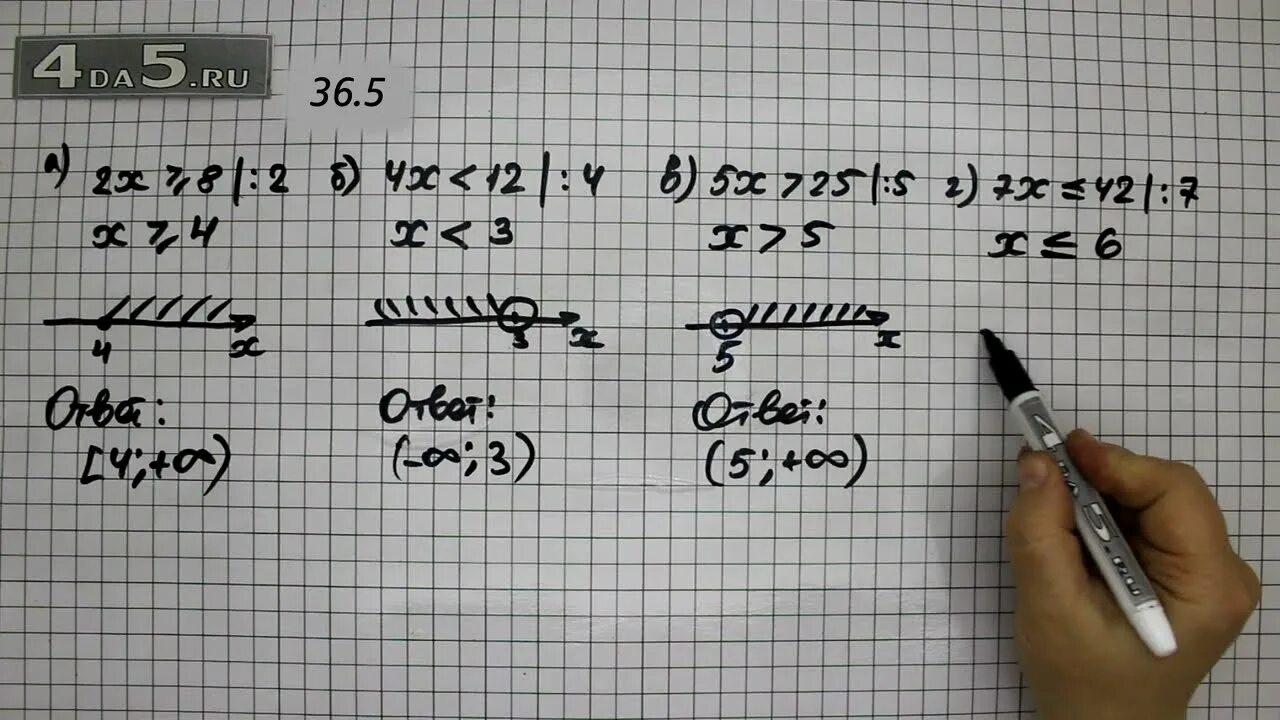 4DA5.RU
36.5
а) 2x ⩾ 8 |:2
x ⩾ 4
4 x
Ответ:
[4;+∞)
б) 4x < 12 | : 4
x < 3
3 x
Ответ:
(-∞; 3)
в) 5x > 25 |:5
x > 5
5 x
Ответ:
(5;+∞)
г) 7x ≤ 42 | : 7
x ≤ 6
4DA5.RU